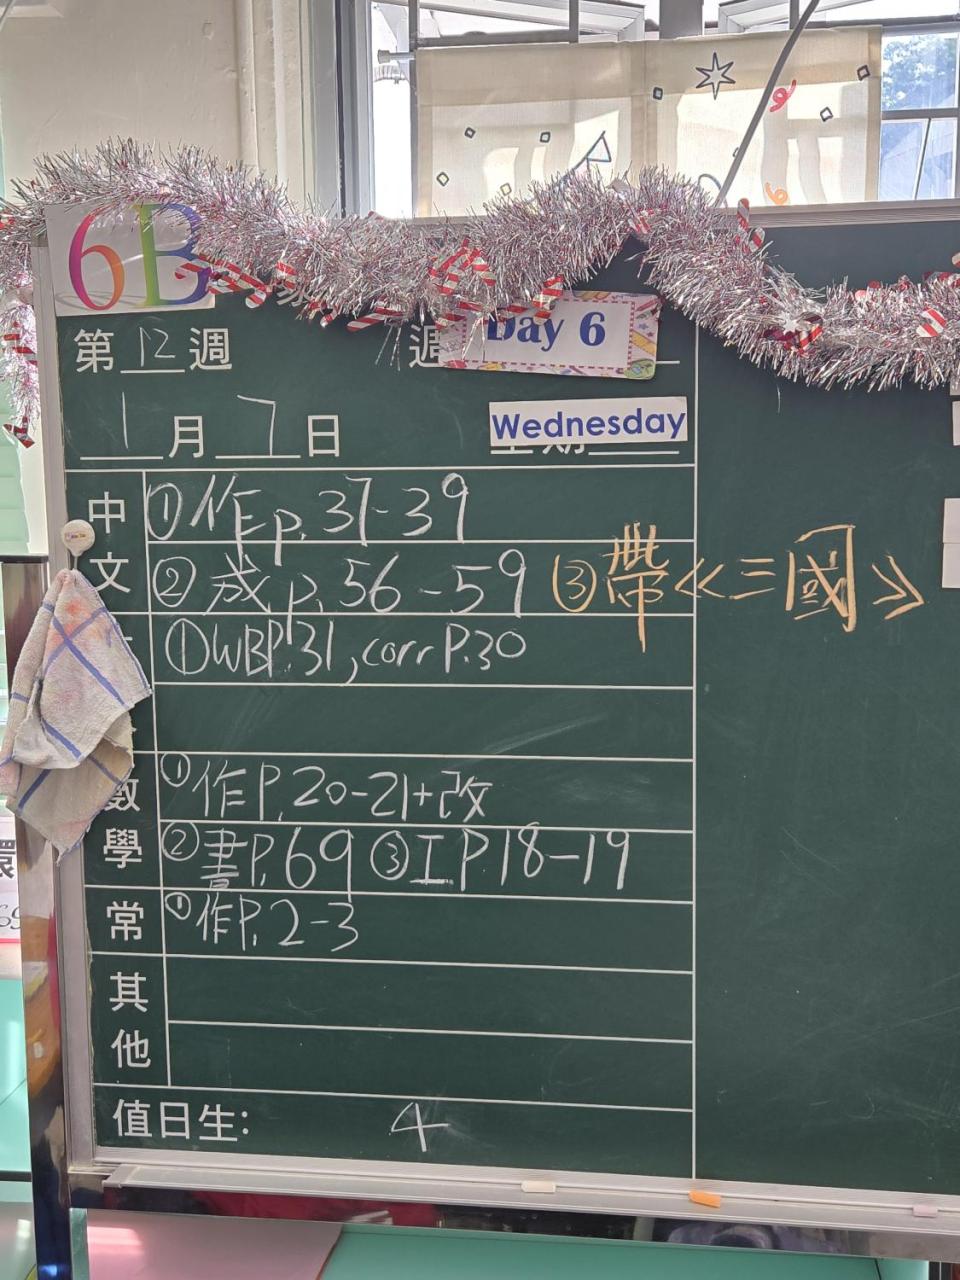 6B
第12週 Day 6
1月7日 Wednesday
中文 ①作p.37-39
②成p.56-59 ③帶《三國》
①WBP.31, corr P.30
數學 ①作P.20-21+改
②書P.69 ③I P.18-19
常 ①作P.2-3
其他
值日生: 4